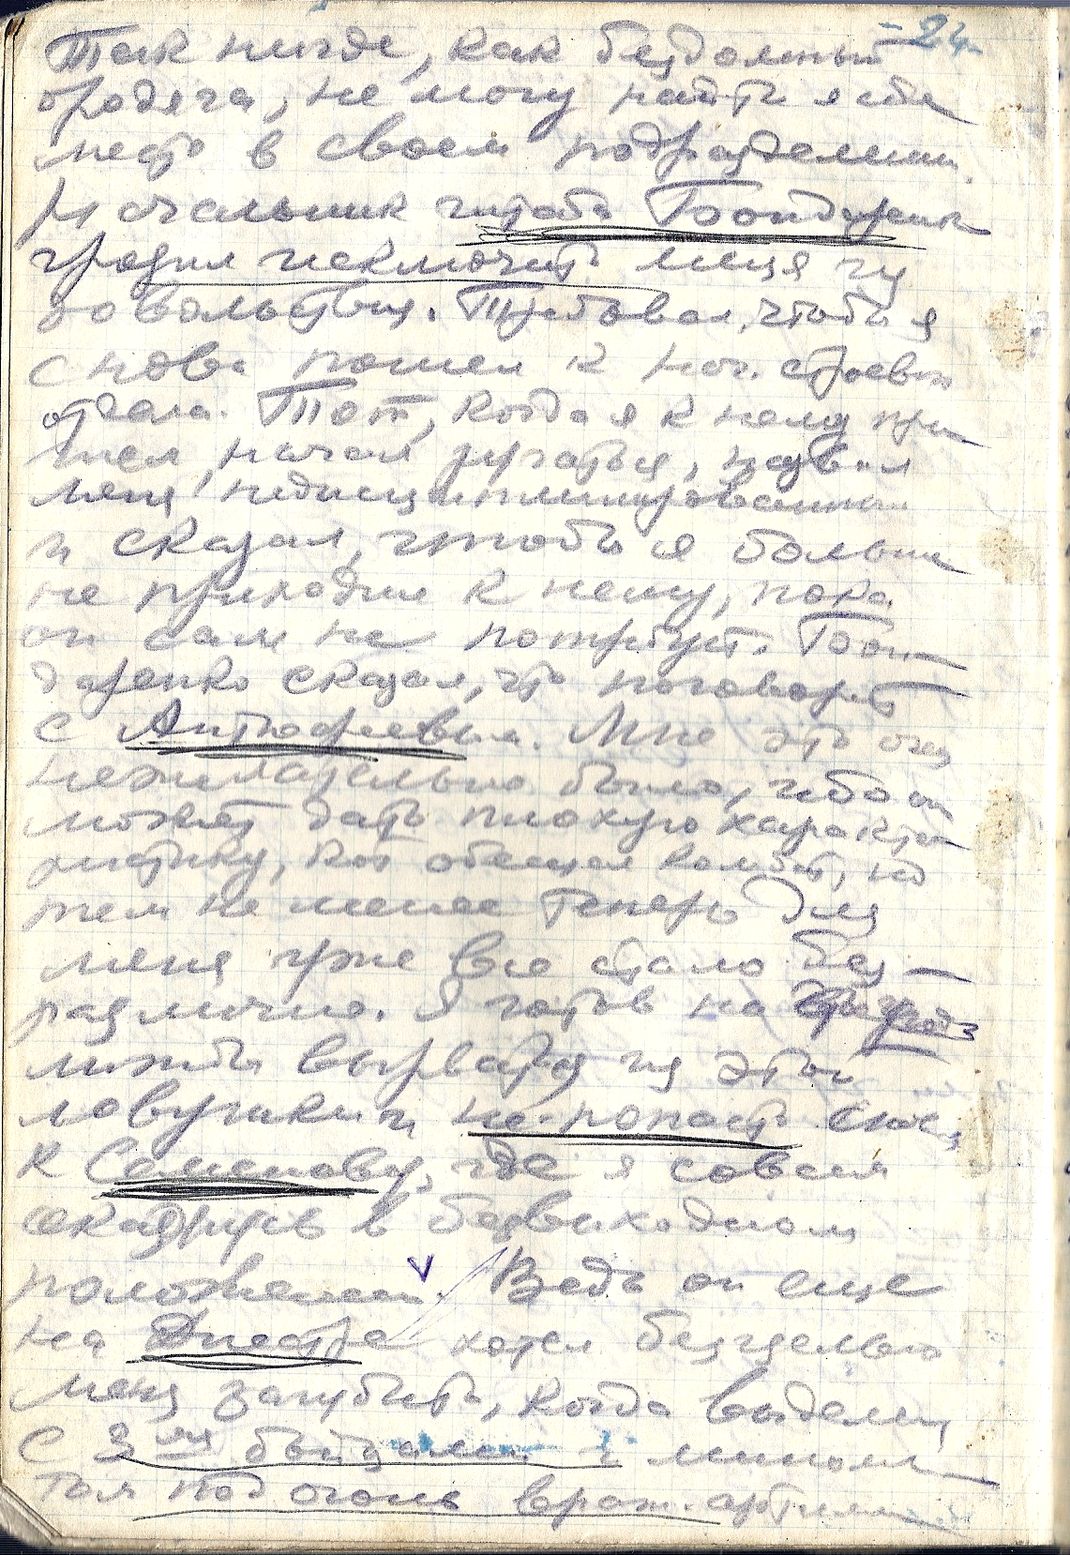 -24-
Так нигде, как бездомный
бродяга, не могу найти я себе
место в своем подразделении.
Начальник штаба Бондаренк
грозил исключить меня из
довольствия. Требовал, чтобы я
снова пошел к нач. строевого
отдела. Тот, когда я к нему при-
шел, начал ругаться, назвал
меня недисциплинированным
и сказал, чтобы я больше
не приходил к нему, пока
он сам не потребует. Бон-
даренко сказал, что поговорит
с Антюфеевым. Мне это очень
нежелательно было, ибо он
может дать плохую характе-
ристику, как обещал комбат, но
тем не менее теперь для
меня уже все стало без-
различно. Я готов на
лишь бы вырваться из этой
ловушки и не попасть снова
к Семенову, где я совсем
окажусь в безвыходном
положении. Ведь он еще
на Днестре хотел бесцельно
меня загубить, когда выделил
с 3мя бойцами и миноме-
том под огонь враж. артиллерии